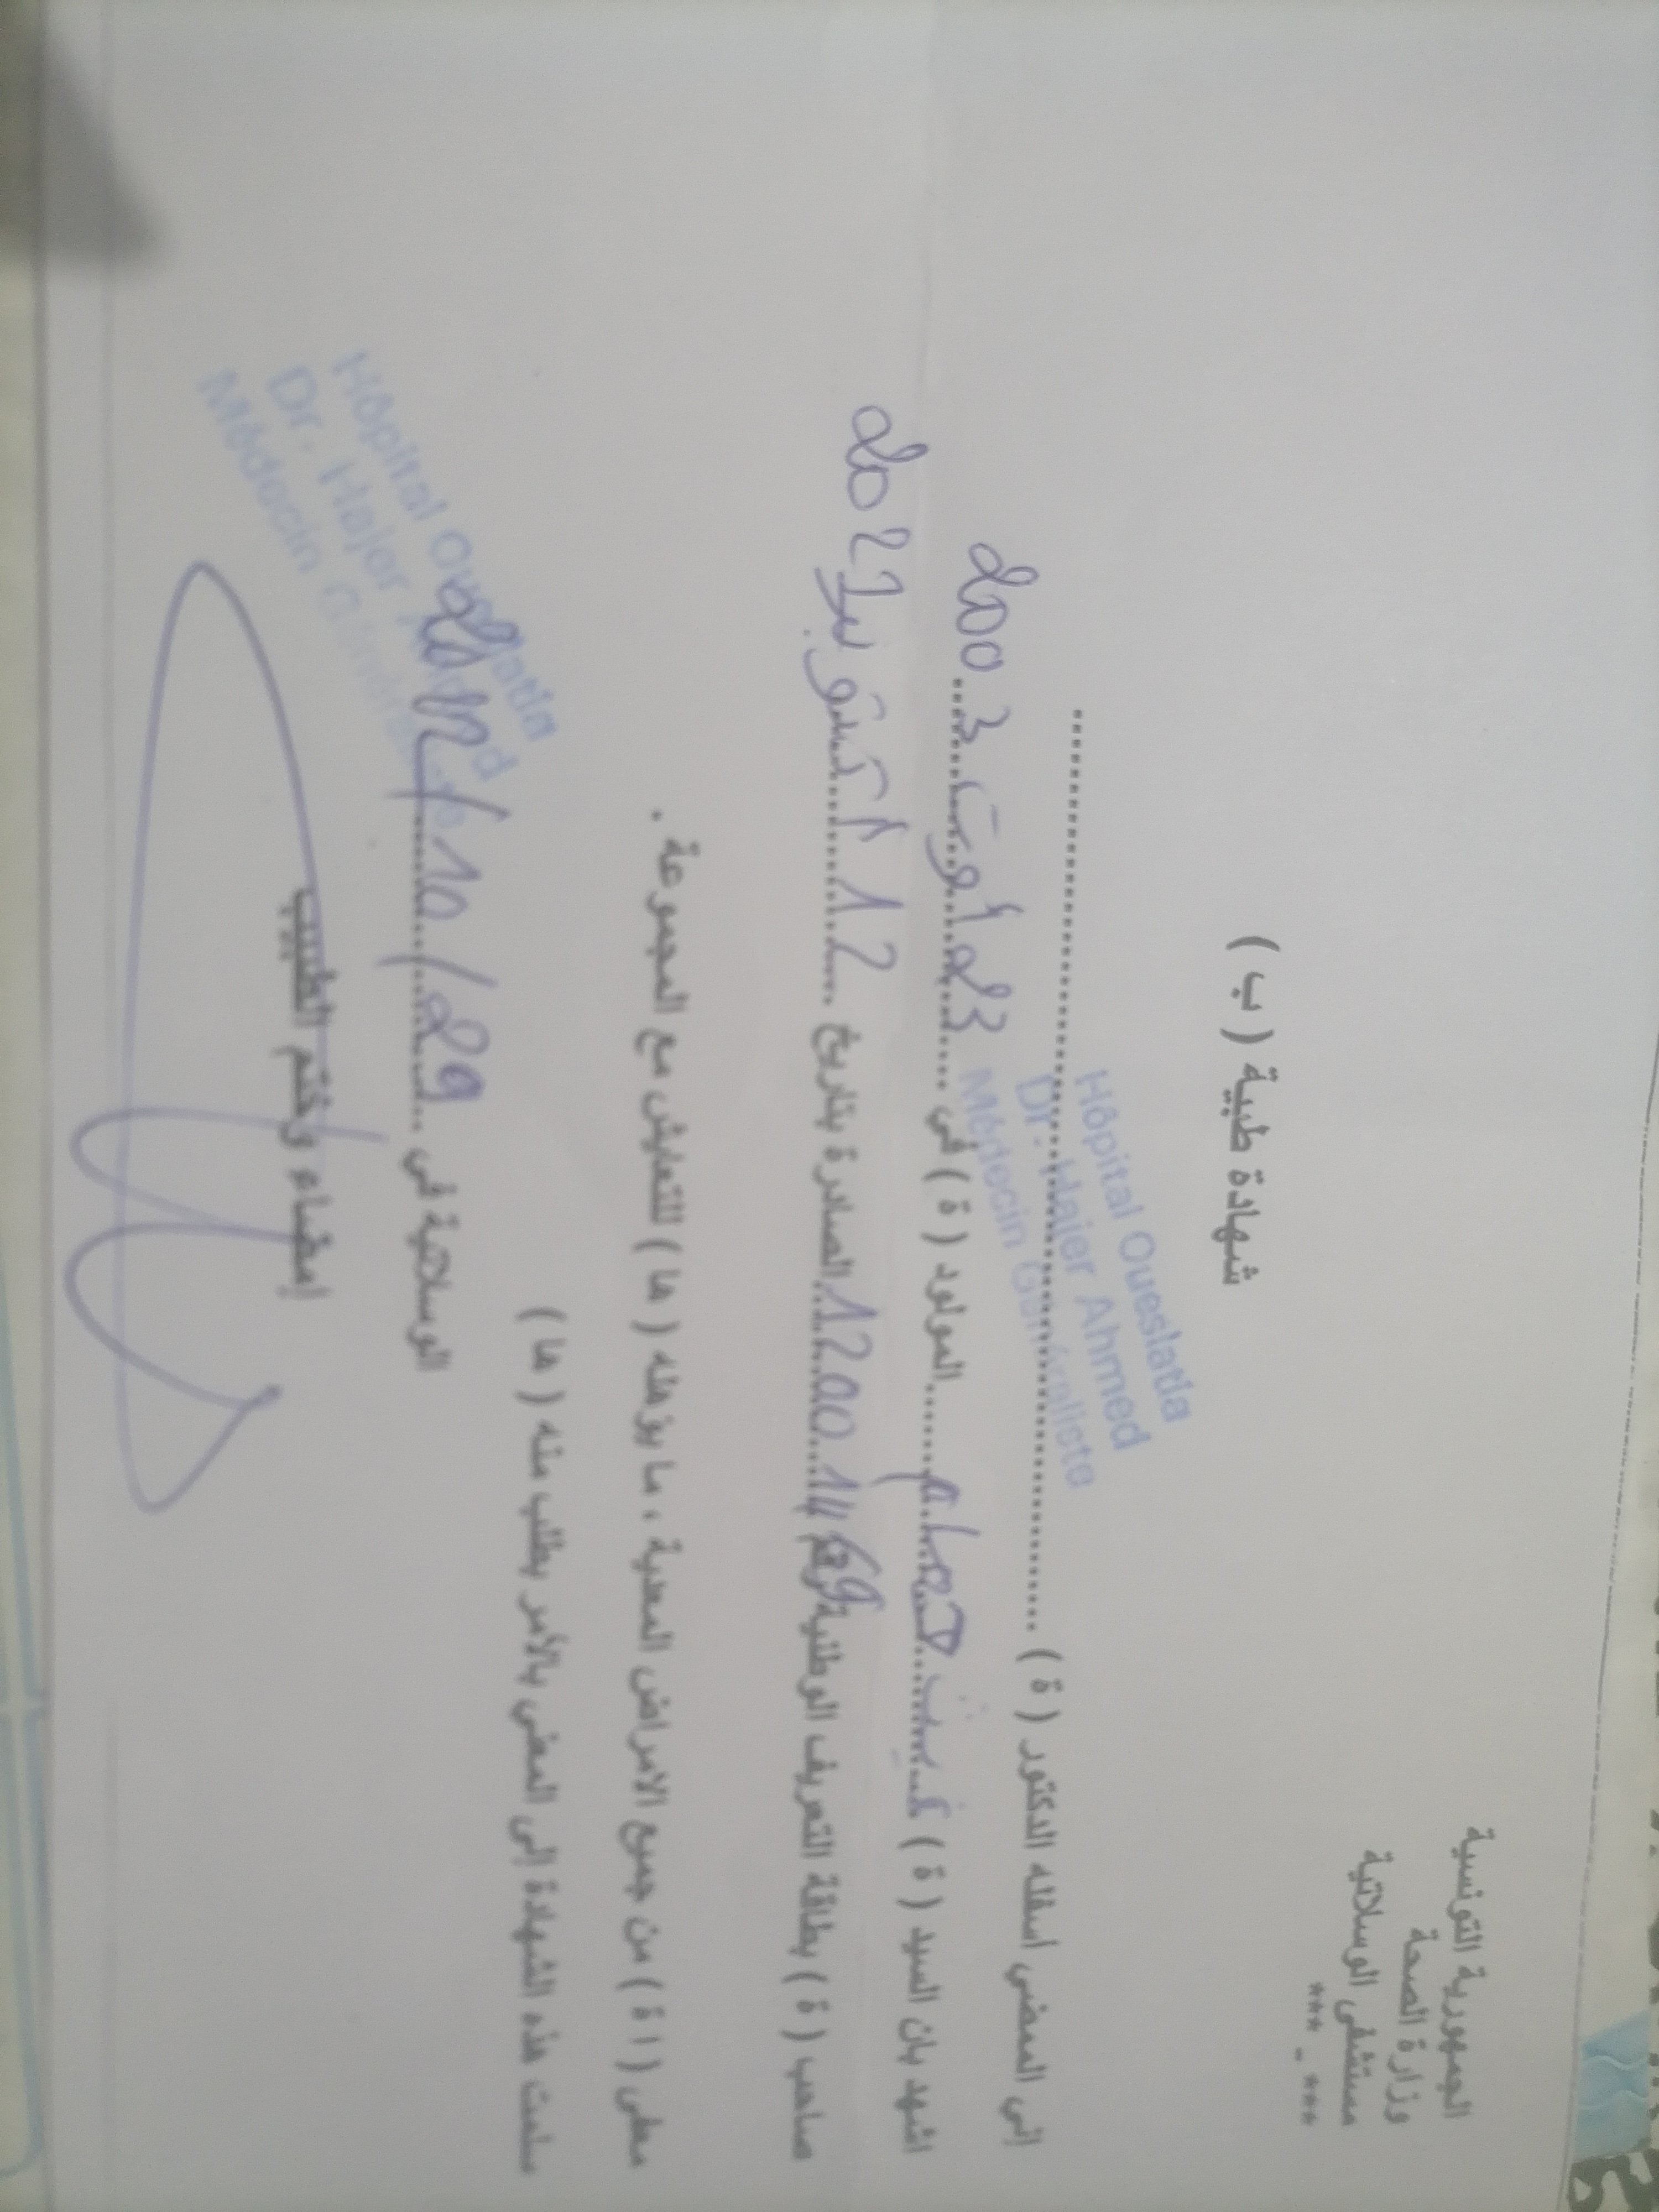 الجمهورية التونسية
وزارة الصحة
مستشفى الوسلاتية
*** - ***
شهادة طبية ( ب )
Hôpital Oueslatia
Dr. Hajer Ahmed
Médecin Généraliste
إني الممضي أسفله الدكتور ( ة ) ................
اشهد بان السيد ( ة ) ........ المولود ( ة ) في 23 أوت 2003
صاحب ( ة ) بطاقة التعريف الوطنية رقم الصادرة بتاريخ 12 أكتوبر 2021
معفى ( ا ة ) من جميع الامراض المعدية ، ما يؤهله ( ها ) للتعايش مع المجموعة .
سلمت هذه الشهادة إلى المعني بالأمر بطلب منه ( ها )
الوسلاتية في 29/10/
إمضاء وختم الطبيب
Hôpital Oueslatia
Dr. Hajer Ahmed
Médecin Généraliste